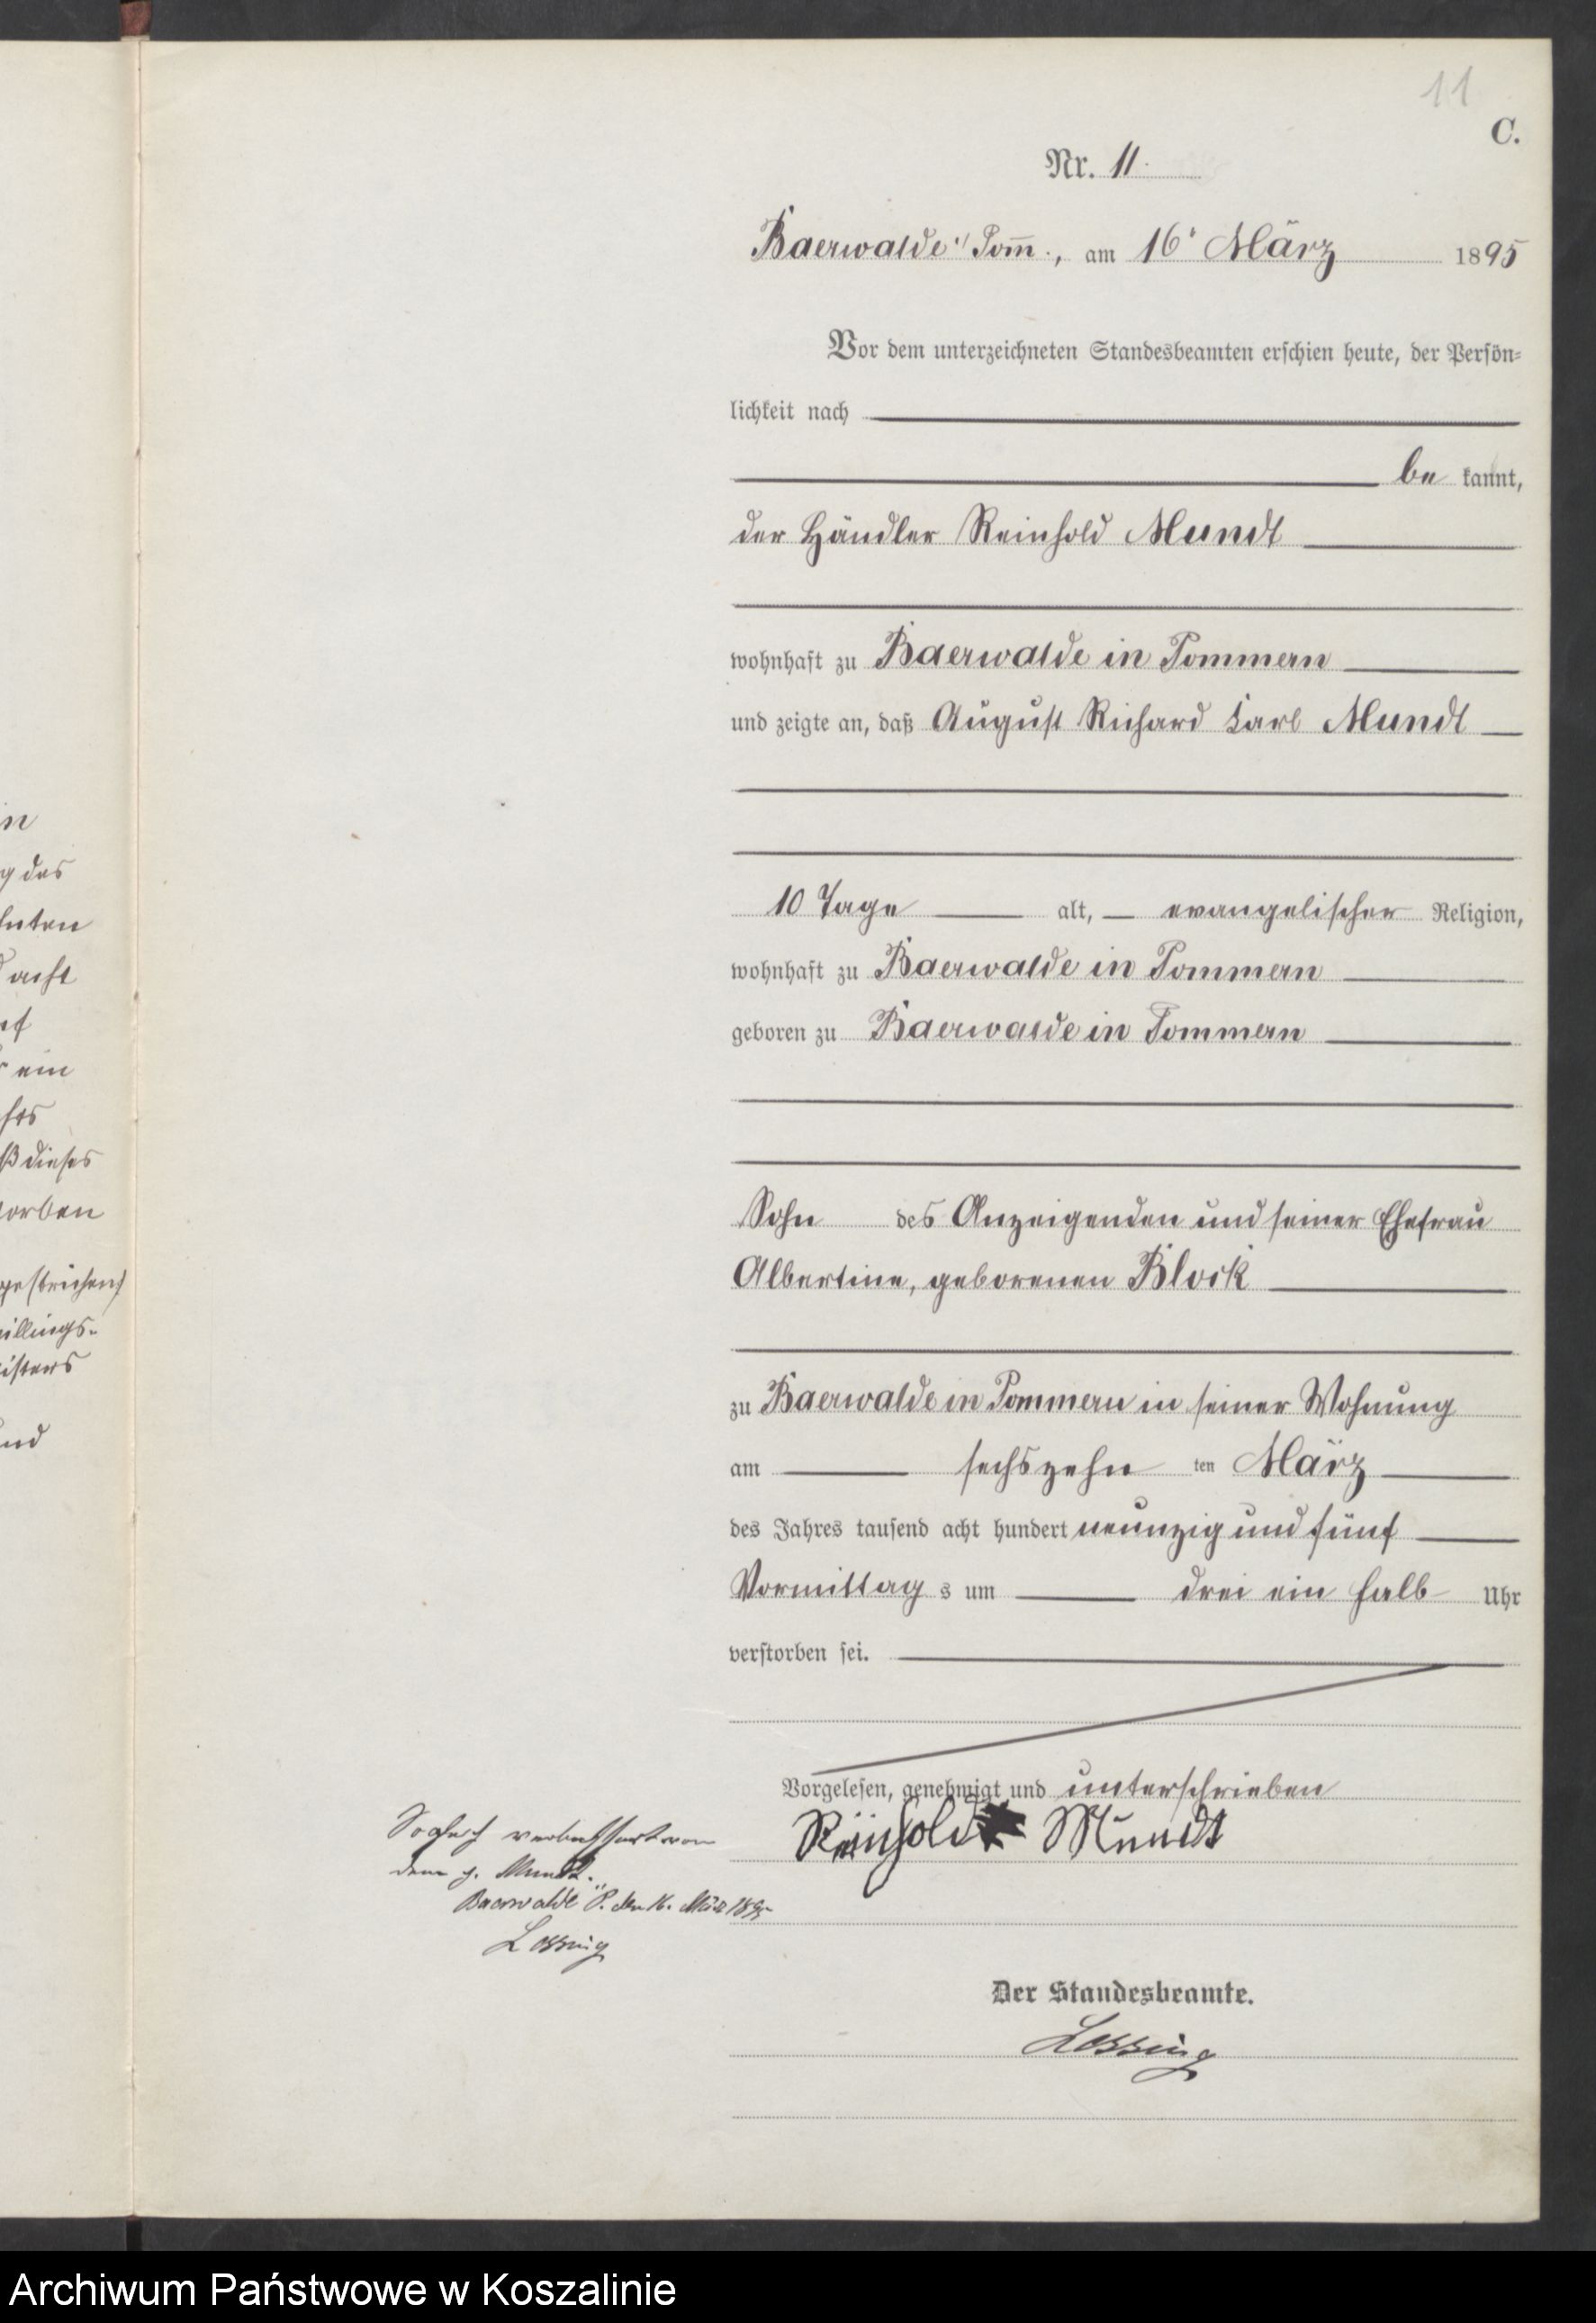 11
C.
Nr. 11.
Baerwalde i/ Pom̅., am 16' März 1895
Vor dem unterzeichneten Standesbeamten erschien heute, der Persön-
lichkeit nach
be kannt,
der Händler Reinhold Mundt
wohnhaft zu Baerwalde in Pommern
und zeigte an, daß August Richard Karl Mundt
10 Tage alt, evangelischer Religion,
wohnhaft zu Baerwalde in Pommern
geboren zu Baerwalde in Pommern
Sohn des Anzeigenden und seiner Ehefrau
Albertine, geborenen Block
zu Baerwalde in Pommern in seiner Wohnung
am sechszehn ten März
des Jahres tausend acht hundert neunzig und fünf
Vormittag s um drei ein halb Uhr
verstorben sei.
Vorgelesen, genehmigt und unterschrieben
Reinhold Mundt
von
dem p. Mundt.
Baerwalde i. P. den 16. März 1895
Lessing
Der Standesbeamte.
Lessing
in
g des
nten
acht
ein
ß dieses
orben
gestrichen
illings-
isters
und
Archiwum Państwowe w Koszalinie